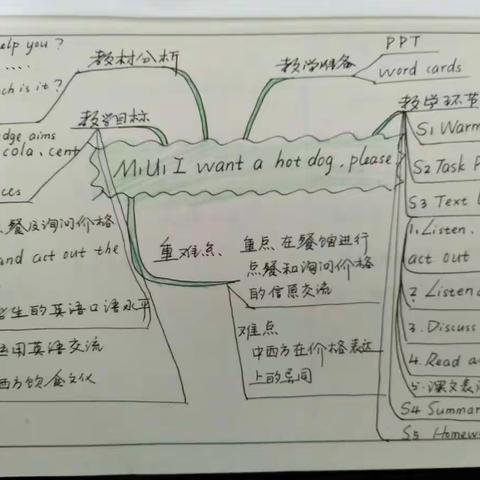 help you?
......
ch is it?
教材分析
教学准备
PPT
word cards
教学目标
dge aims
cola、cent
ces
点餐及询问价格
and act out the
学生的英语口语水平
运用英语交流
西方饮食文化
M1U1 I want a hot dog, please
重难点、
重点、在餐馆进行
点餐和询问价格
的信息交流
难点
中西方在价格表达
上的异同
教学环节
S1 Warm
S2 Task P
S3 Text
1. Listen、
act out
2. Listen
3. Discuss
4. Read a
5. 课文表
S4 Summar
S5 Homew